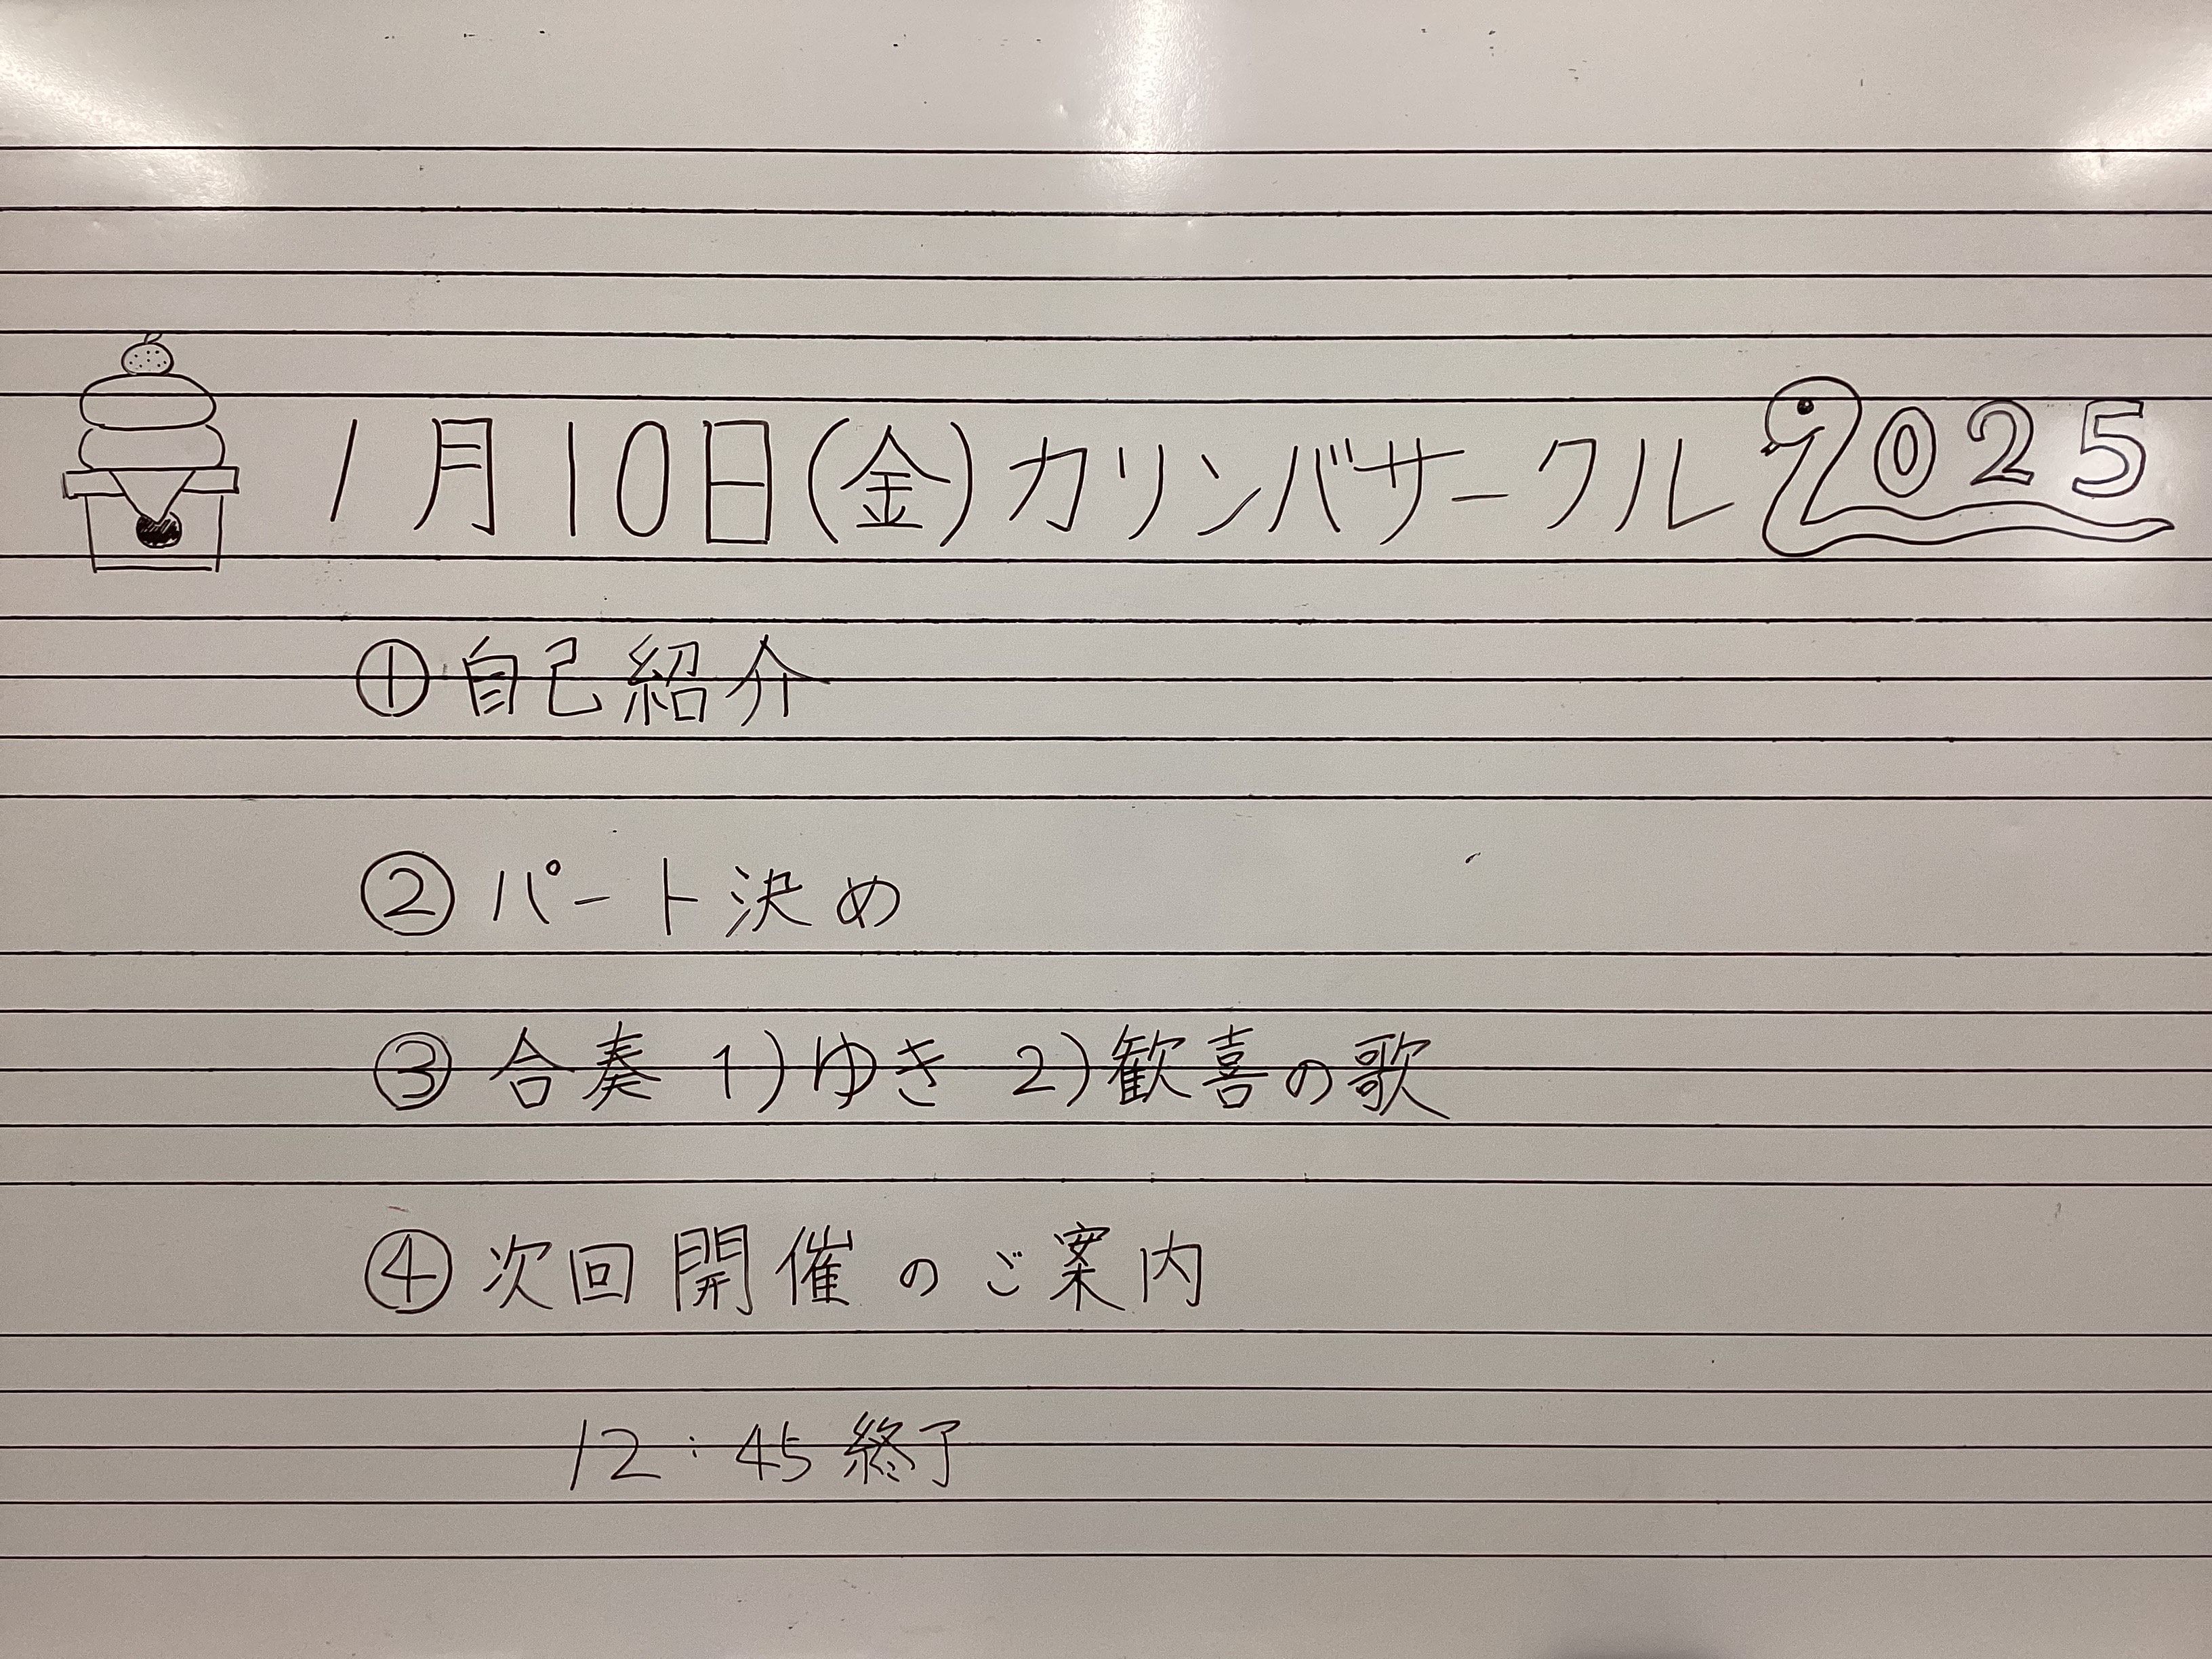 1月10日(金)カリンバサークル 2025
①自己紹介
②パート決め
③合奏 1)ゆき 2)歓喜の歌
④次回開催のご案内
12:45終了